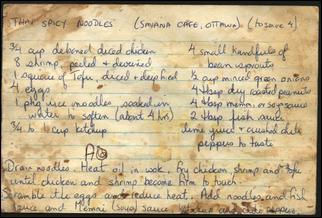 THAI SPICY NOODLES (SAVANA CAFE, OTTAWA) (to serve 4)
3/4 cup deboned diced chicken
8 shrimp, peeled + deveined
1 square of Tofu, diced + deep fried
4 eggs
1 pkg rice noodles, soaked in
water to soften (about 4 hrs)
3/4 to 1 cup ketchup
4 small handfuls of
bean sprouts
1/2 cup minced green onions
4 tbsp dry roasted peanuts
4 tbsp or soy sauce
2 tbsp fish sauce
lime juice + crushed chile
peppers to taste
Drain noodles. Heat oil in wok, fry chicken, shrimp and tofu
until chicken and shrimp become firm to touch.
Scramble the eggs and reduce heat. Add noodles and fish
sauce and (soya) sauce